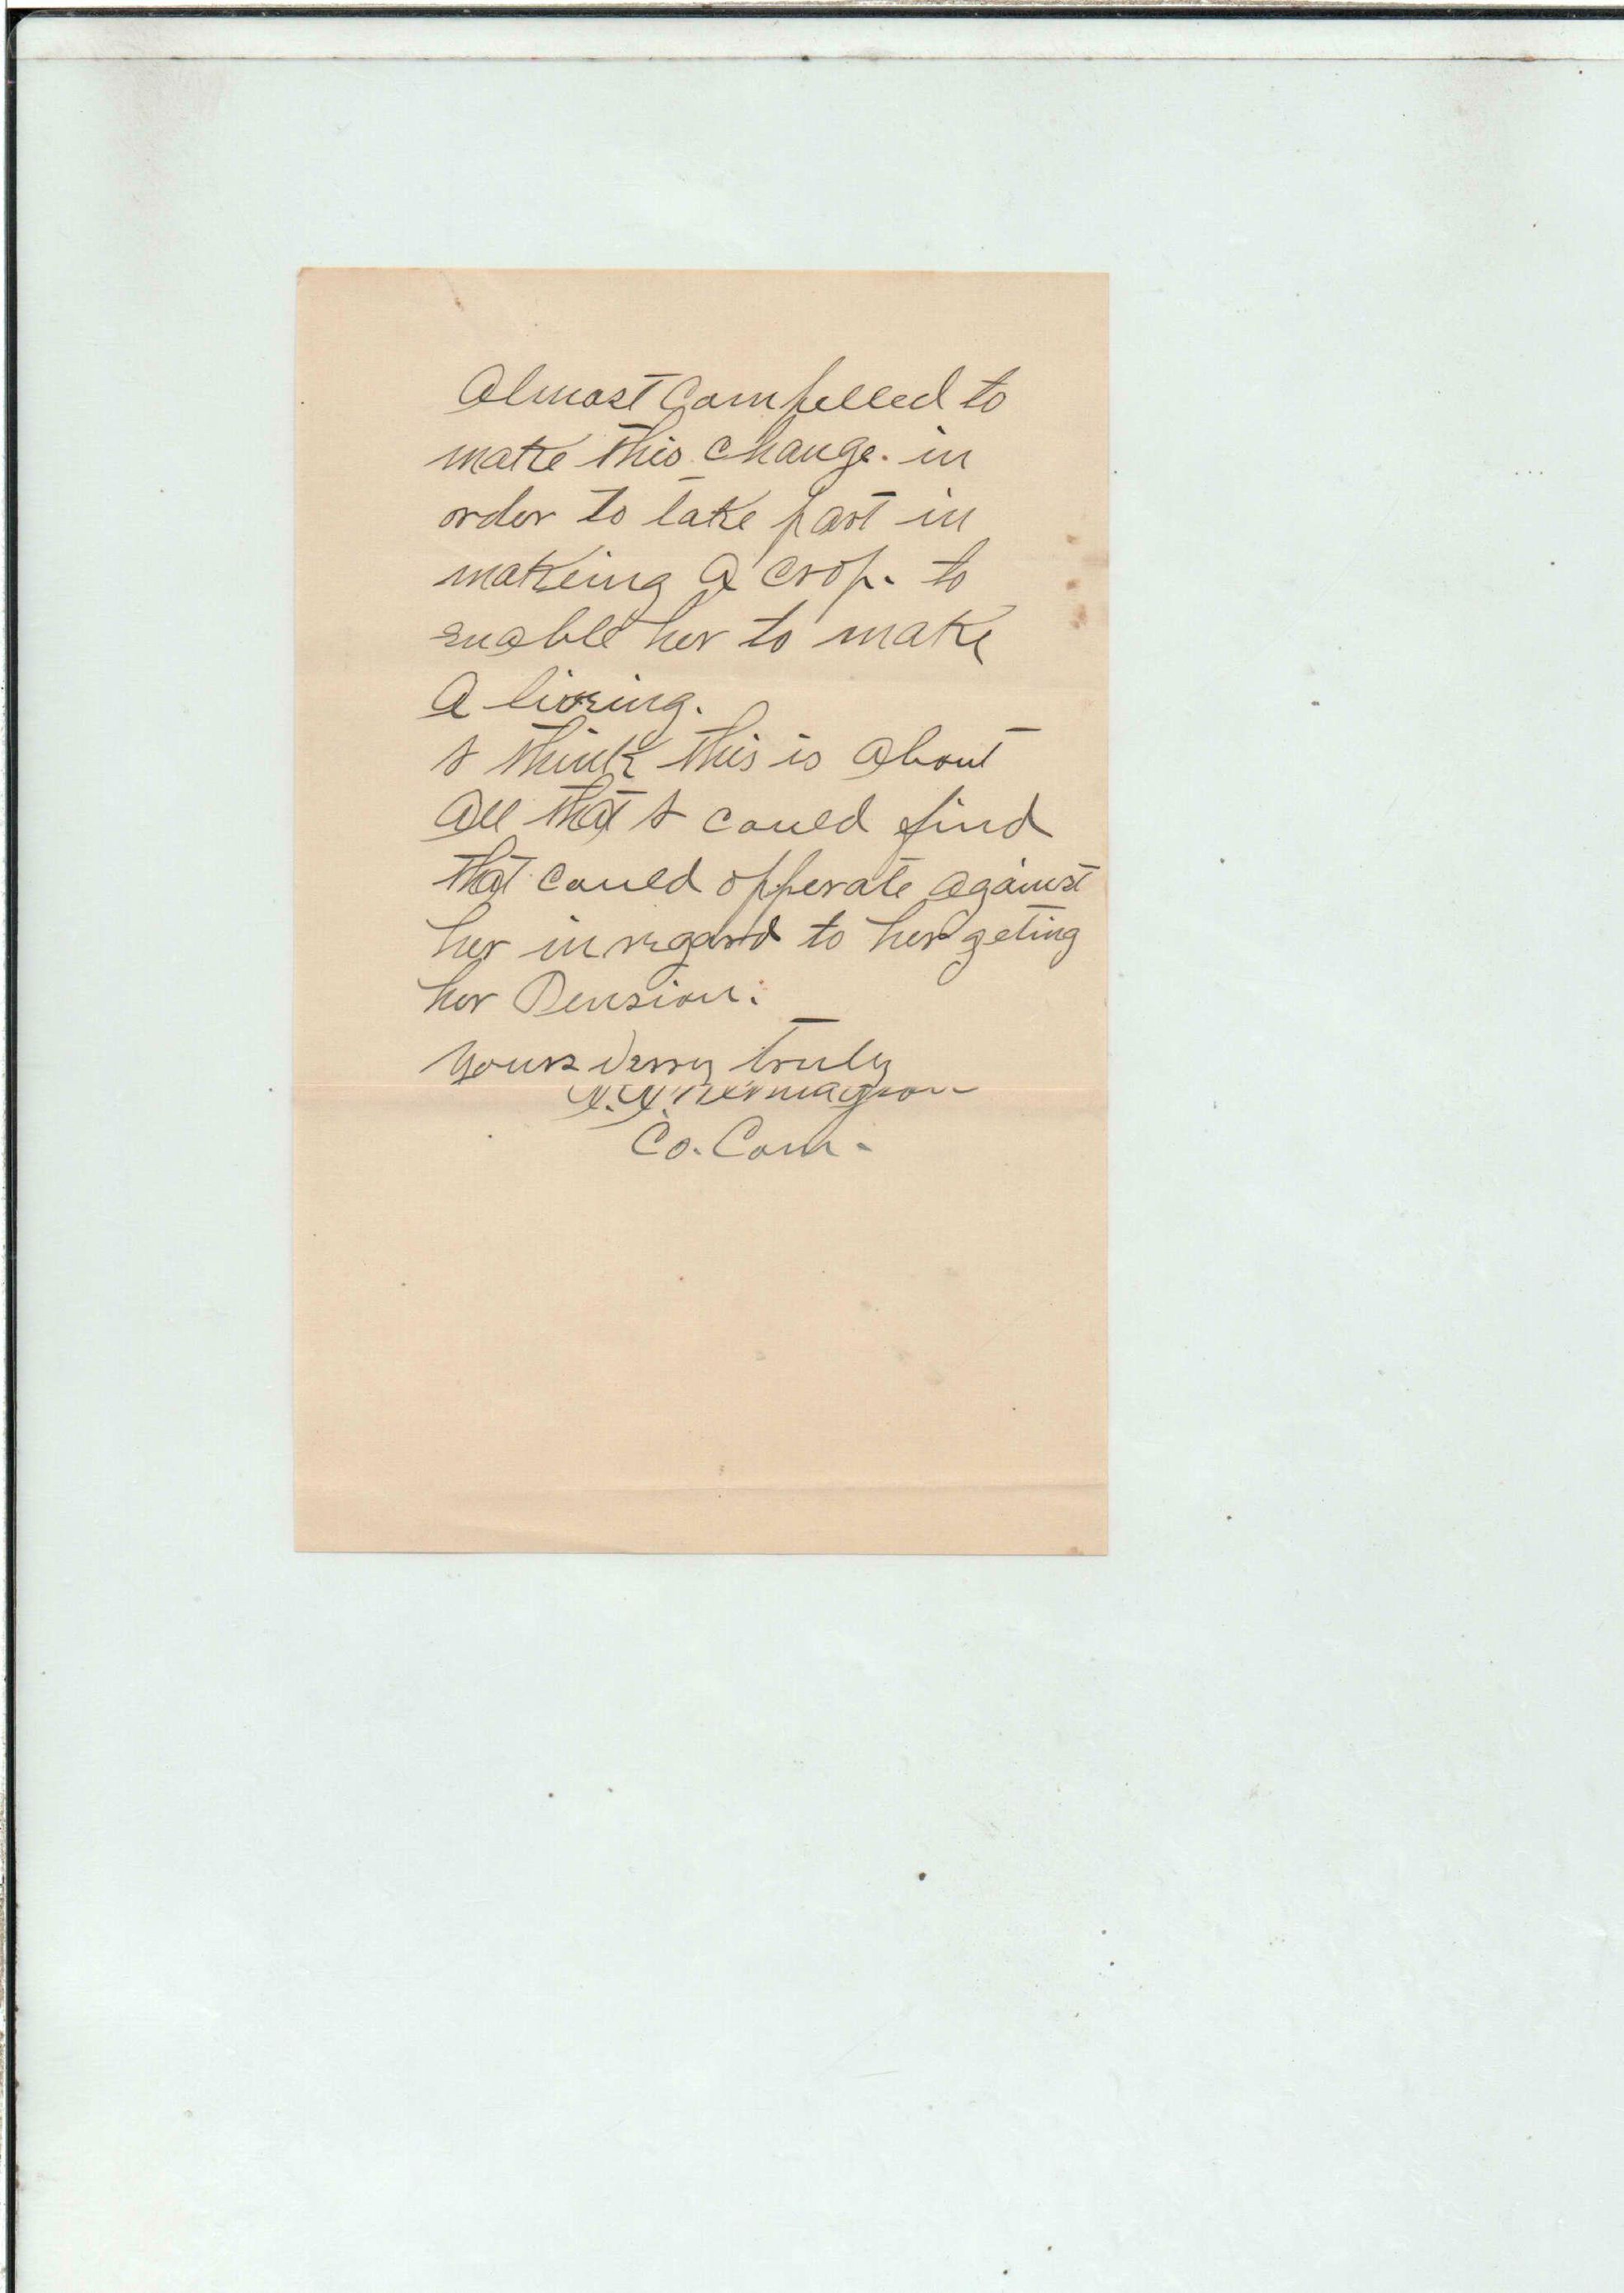 Almost Compelled to
make this change. in
order to take part in
makeing A crop. to
enable her to make
A liveing.
I think this is About
All that I could find
that could opperate against
her in regard to her geting
her Pension.
Yours Verry truly
Co. Com.